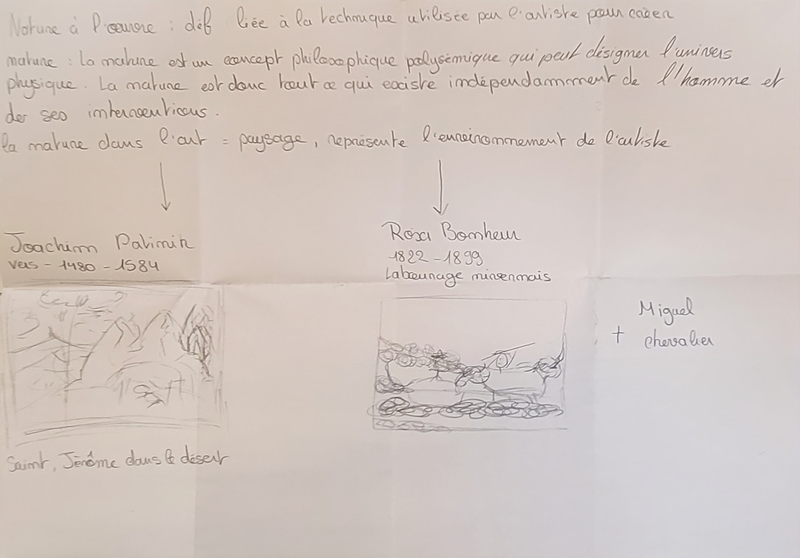 Nature à l'œuvre : déf liée à la technique utilisée par l'artiste pour créer
nature : La nature est un concept philosophique polysémique qui peut désigner l'univers
physique. La nature est donc tout ce qui existe indépendamment de l'homme et
de ses interventions.
la nature dans l'art = paysage, représente l'environnement de l'artiste
Joachim Patinir
vers - 1480 - 1584
Saint, Jérôme dans le désert
Rosa Bonheur
1822 - 1899
Labourage nivernais
+ Miguel
chevalier